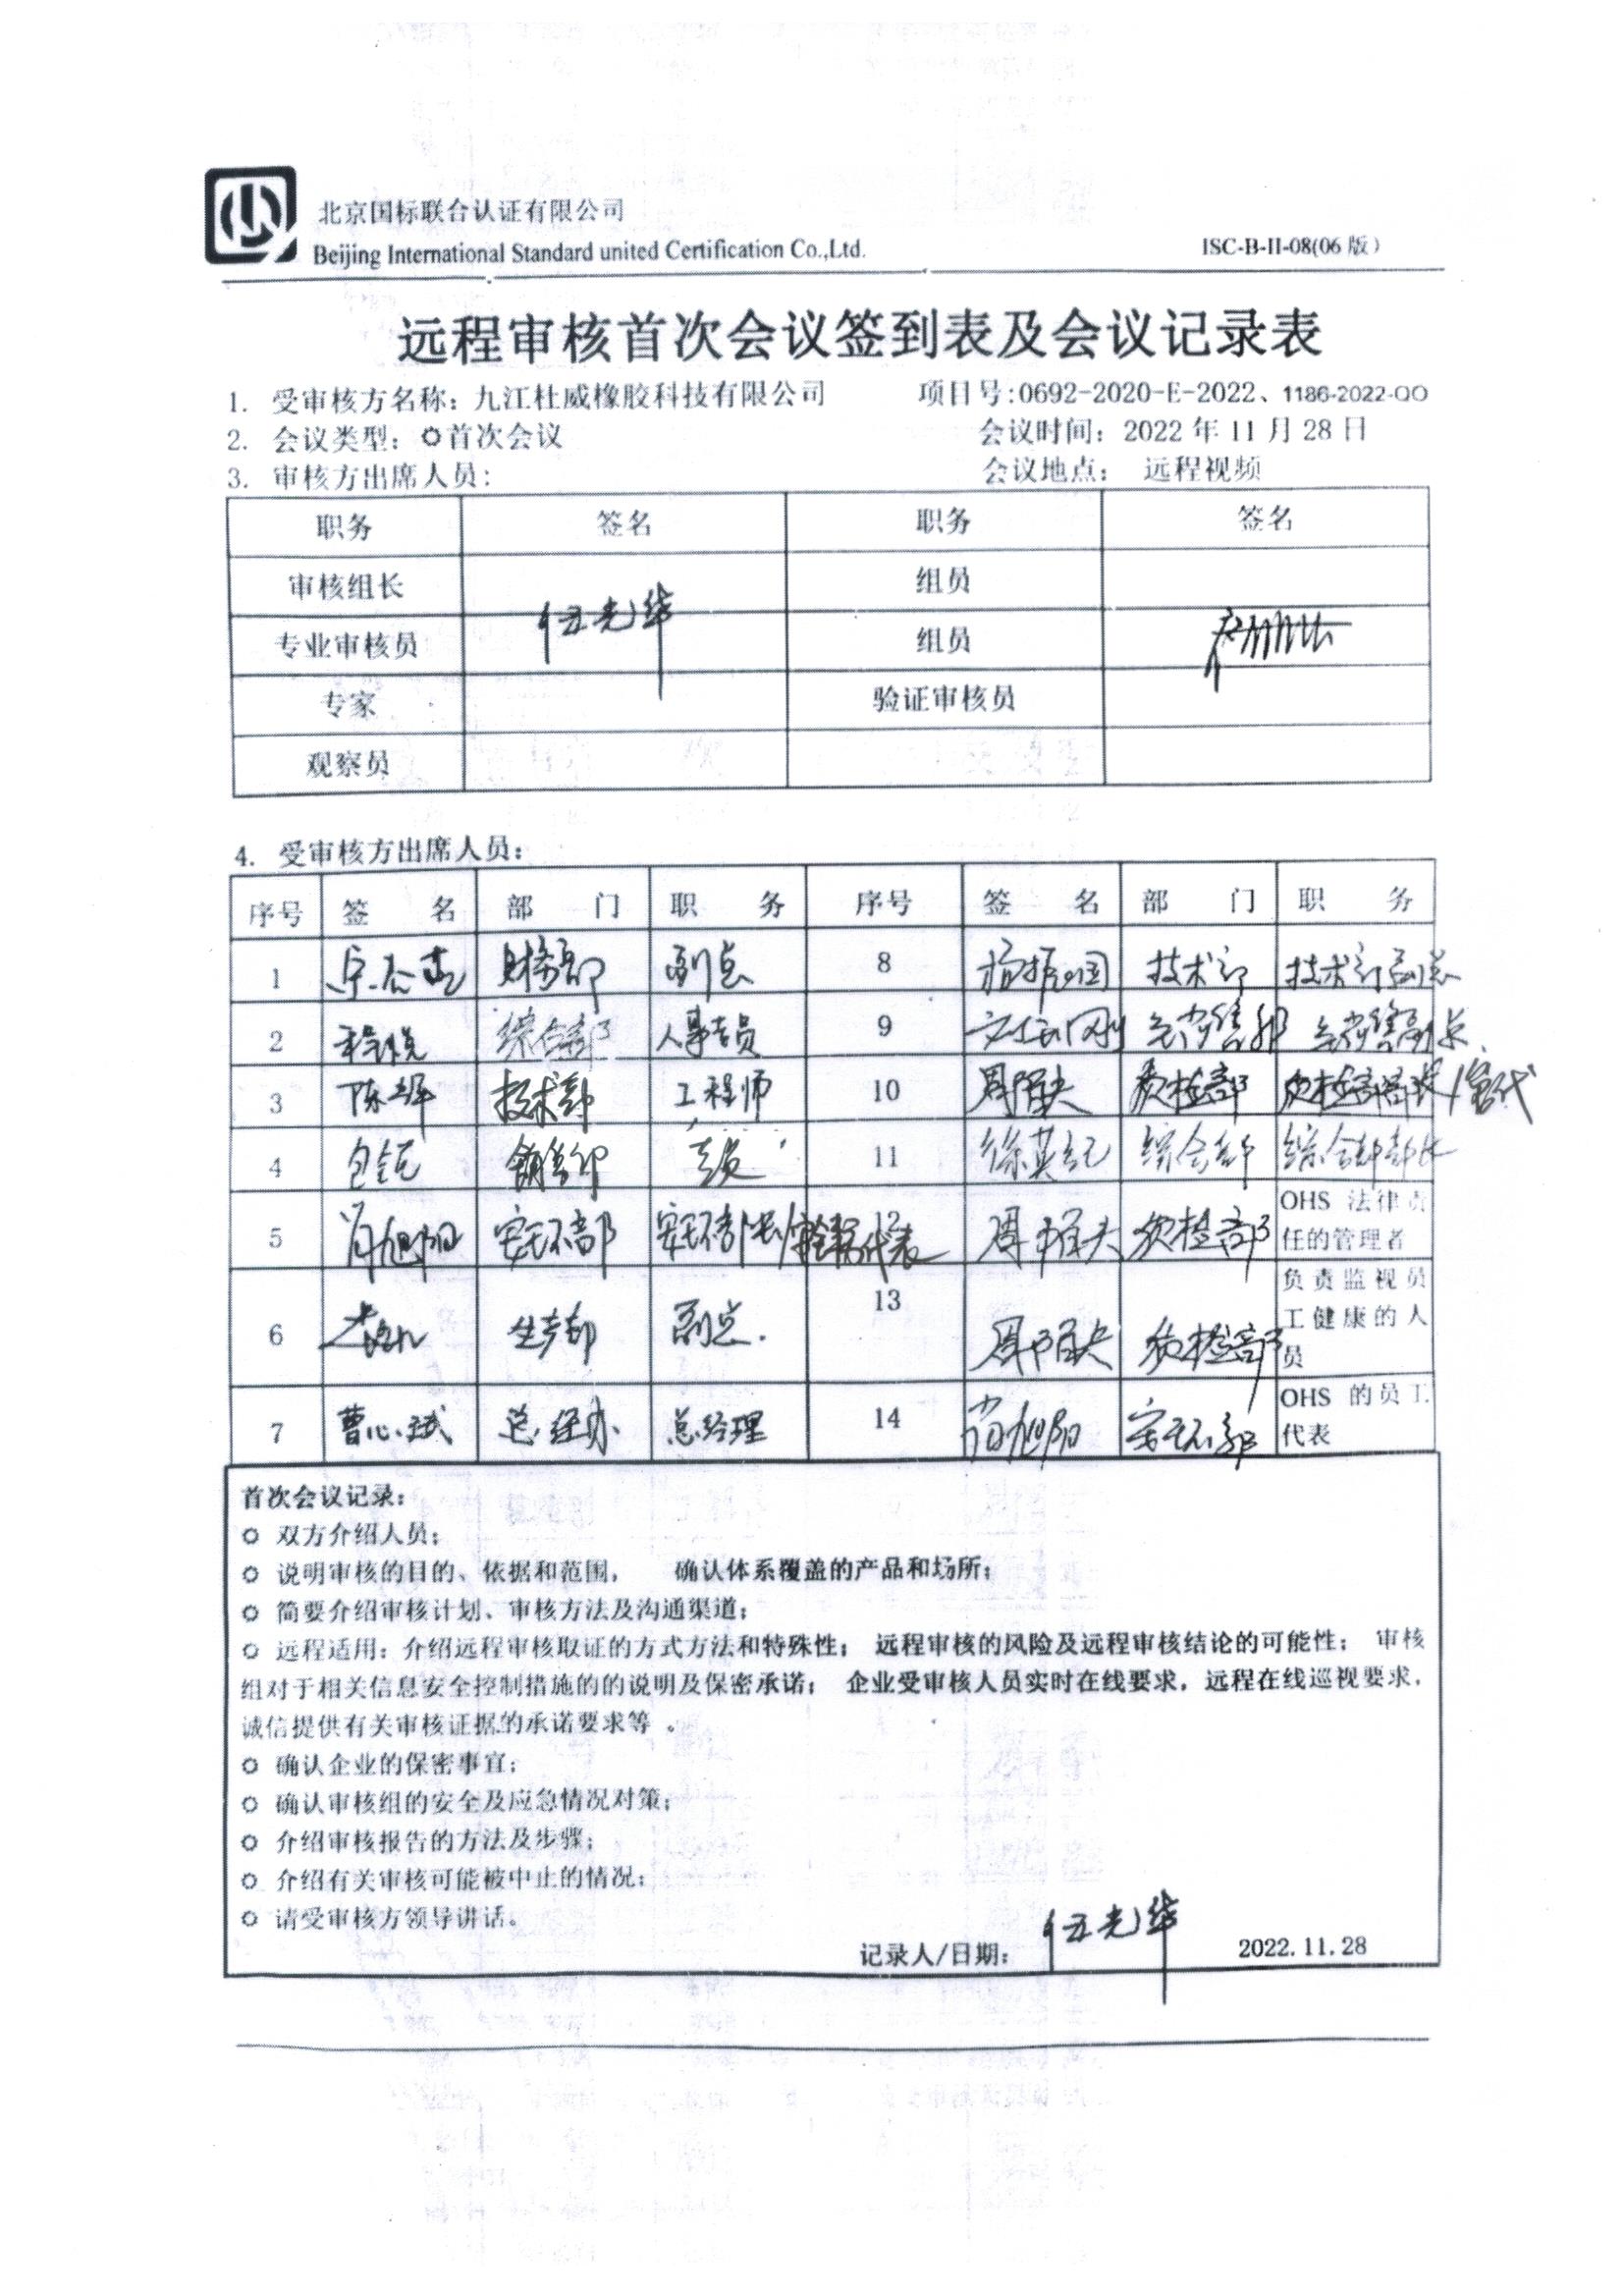 北京国标联合认证有限公司
Beijing International Standard united Certification Co.,Ltd.
ISC-B-II-08(06 版)
远程审核首次会议签到表及会议记录表
1. 受审核方名称：九江杜威橡胶科技有限公司 项目号:0692-2020-E-2022、1186-2022-QO
2. 会议类型：首次会议 会议时间：2022 年 11 月 28 日
3. 审核方出席人员： 会议地点： 远程视频
职务 签名 职务 签名
审核组长 伍光华 组员
专业审核员 组员
专家 验证审核员
观察员
4. 受审核方出席人员：
序号 签 名 部 门 职 务 序号 签 名 部 门 职 务
1 财务部 副总 8 技术部 技术部副总
2 程悦 综合部 人事专员 9 销售部 销售副总
3 陈辉 技术部 工程师 10 质检部 质检部部长/管代
4 销售部 专员 11 徐英纪 综合部 综合部部长
5 肖旭阳 安环部 12 质检部 OHS 法律责任的管理者
6 生产部 副总. 13 质检部 负责监视员工健康的人员
7 曹心斌 总经办 总经理 14 肖旭阳 安环部 OHS 的员工代表
首次会议记录：
双方介绍人员；
说明审核的目的、依据和范围， 确认体系覆盖的产品和场所；
简要介绍审核计划、审核方法及沟通渠道；
远程适用：介绍远程审核取证的方式方法和特殊性； 远程审核的风险及远程审核结论的可能性； 审核
组对于相关信息安全控制措施的的说明及保密承诺； 企业受审核人员实时在线要求，远程在线巡视要求，
诚信提供有关审核证据的承诺要求等 。
确认企业的保密事宜；
确认审核组的安全及应急情况对策；
介绍审核报告的方法及步骤；
介绍有关审核可能被中止的情况；
请受审核方领导讲话。
记录人/日期： 伍光华 2022.11.28